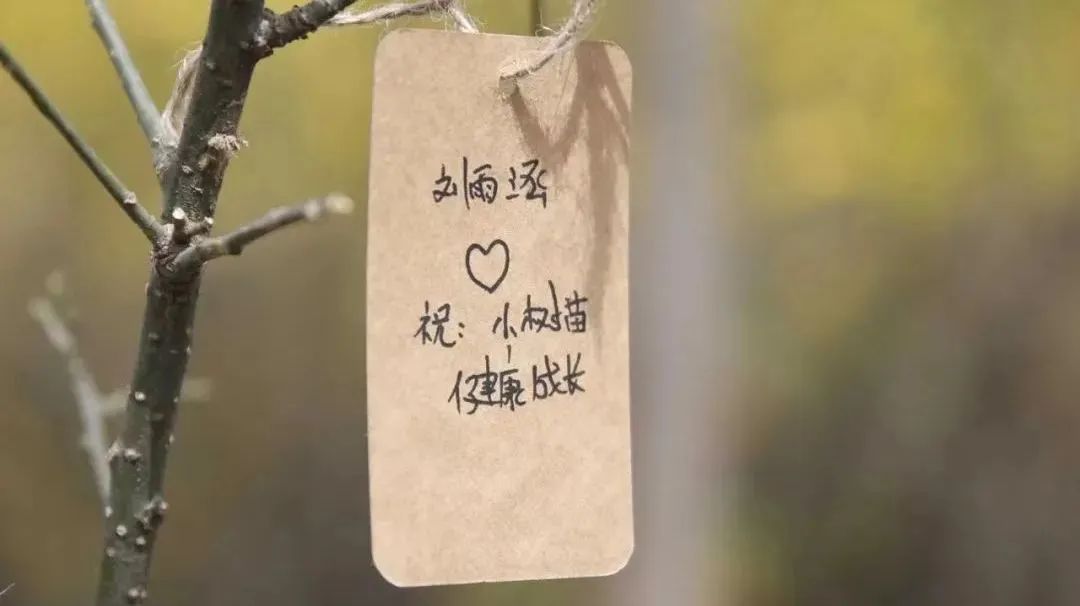 刘雨
♡
祝：小树苗
健康成长